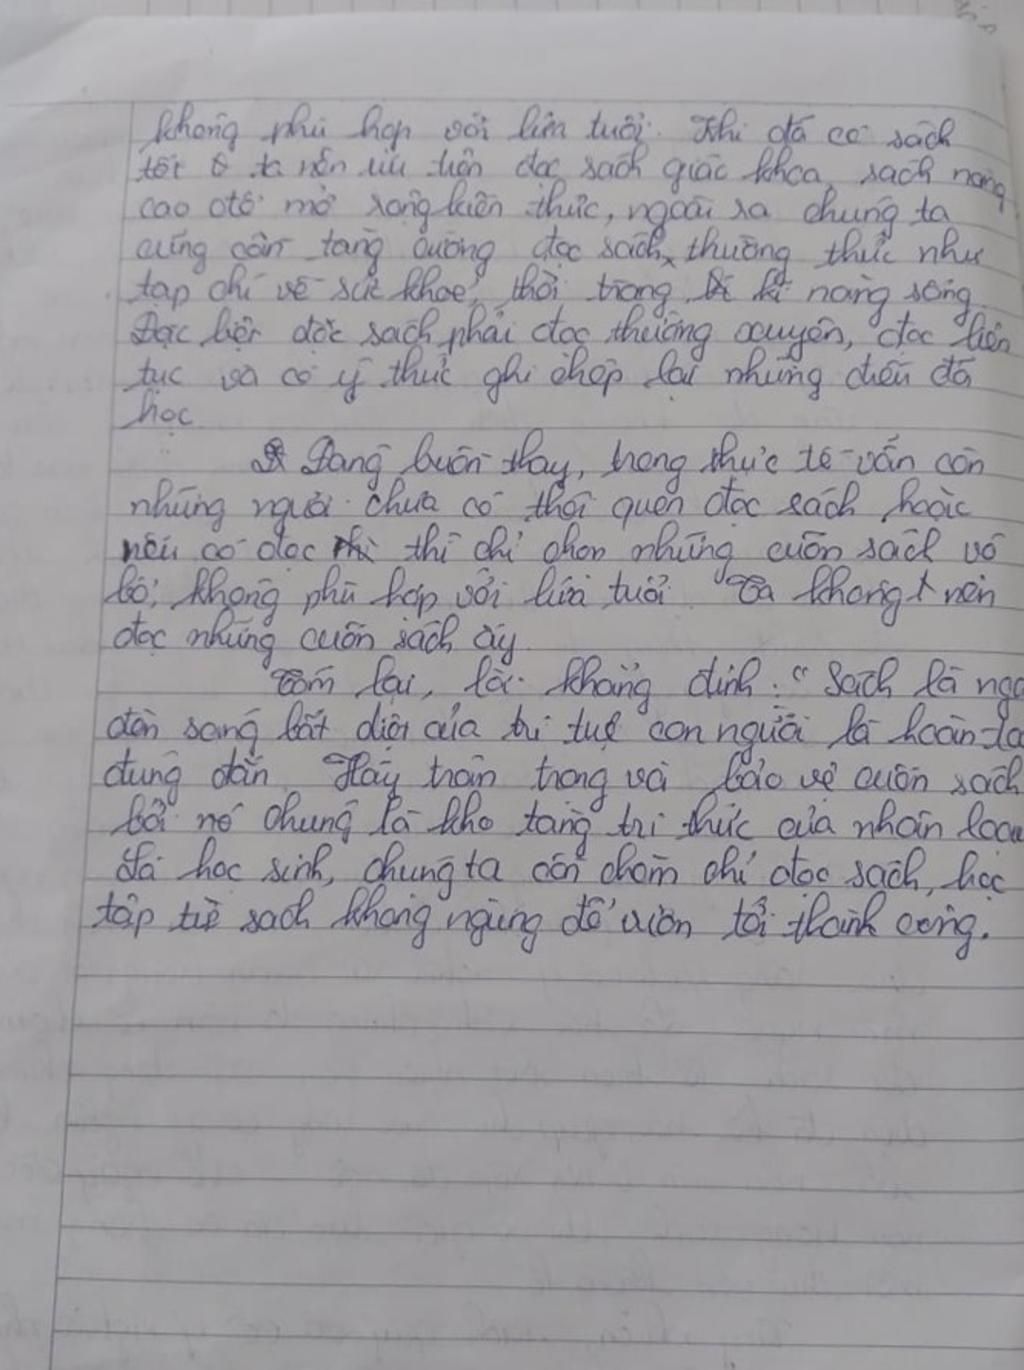 không phù hợp với lứa tuổi. Khi đã có sách
tốt ta nên ưu tiên đọc sách giác khoa, sách nâng
cao để mở rộng kiến thức, ngoài ra chúng ta
cũng cần tăng cường đọc sách, thường thức như
tạp chí về sức khoẻ, thời trang, kĩ năng sống.
Đặc biệt đọc sách phải đọc thường xuyên, đọc liên
tục và có ý thức ghi chép lại những điều đã
học
Đáng buồn thay, trong thực tế vẫn còn
những người chưa có thói quen đọc sách hoặc
nếu có đọc thì chỉ chọn những cuốn sách vô
bổ, không phù hợp với lứa tuổi. Ta không nên
đọc những cuốn sách ấy.
Tóm lại, lời khẳng định: "Sách là ngọ
đèn sáng bất diệt của trí tuệ con người là hoàn to
đúng đắn. Hãy trân trọng và bảo vệ cuốn sách
bởi nó chúng là kho tàng tri thức của nhân loại
Là học sinh, chúng ta cần chăm chỉ đọc sách, học
tập từ sách không ngừng để vươn tới thành công.